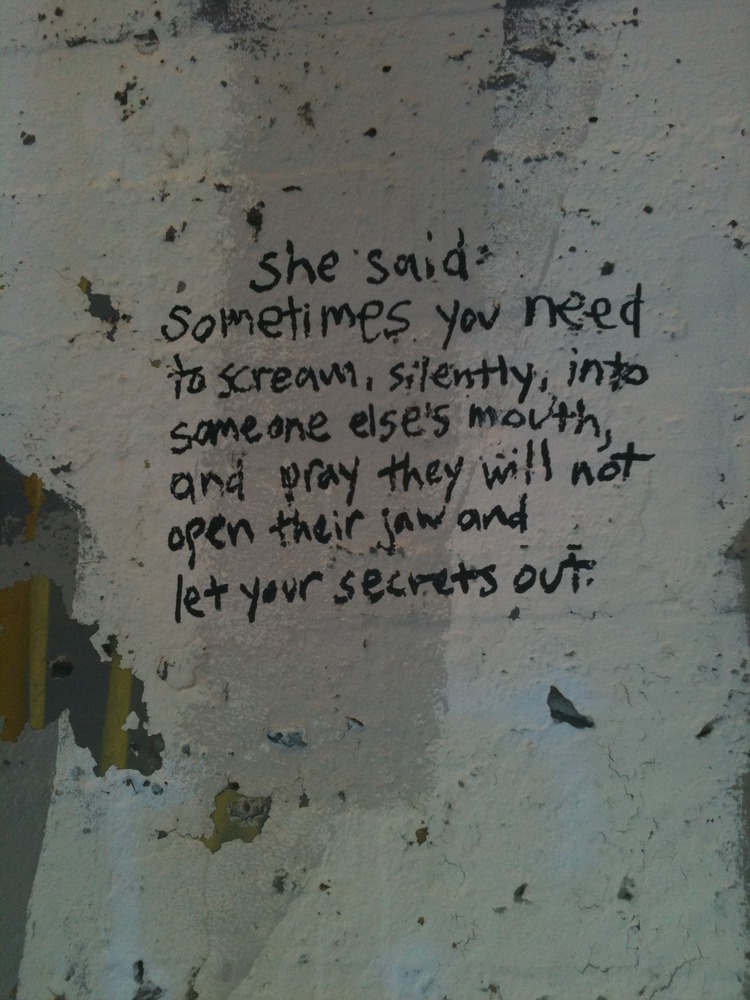 she said:
sometimes you need
to scream, silently, into
someone else's mouth,
and pray they will not
open their jaw and
let your secrets out.